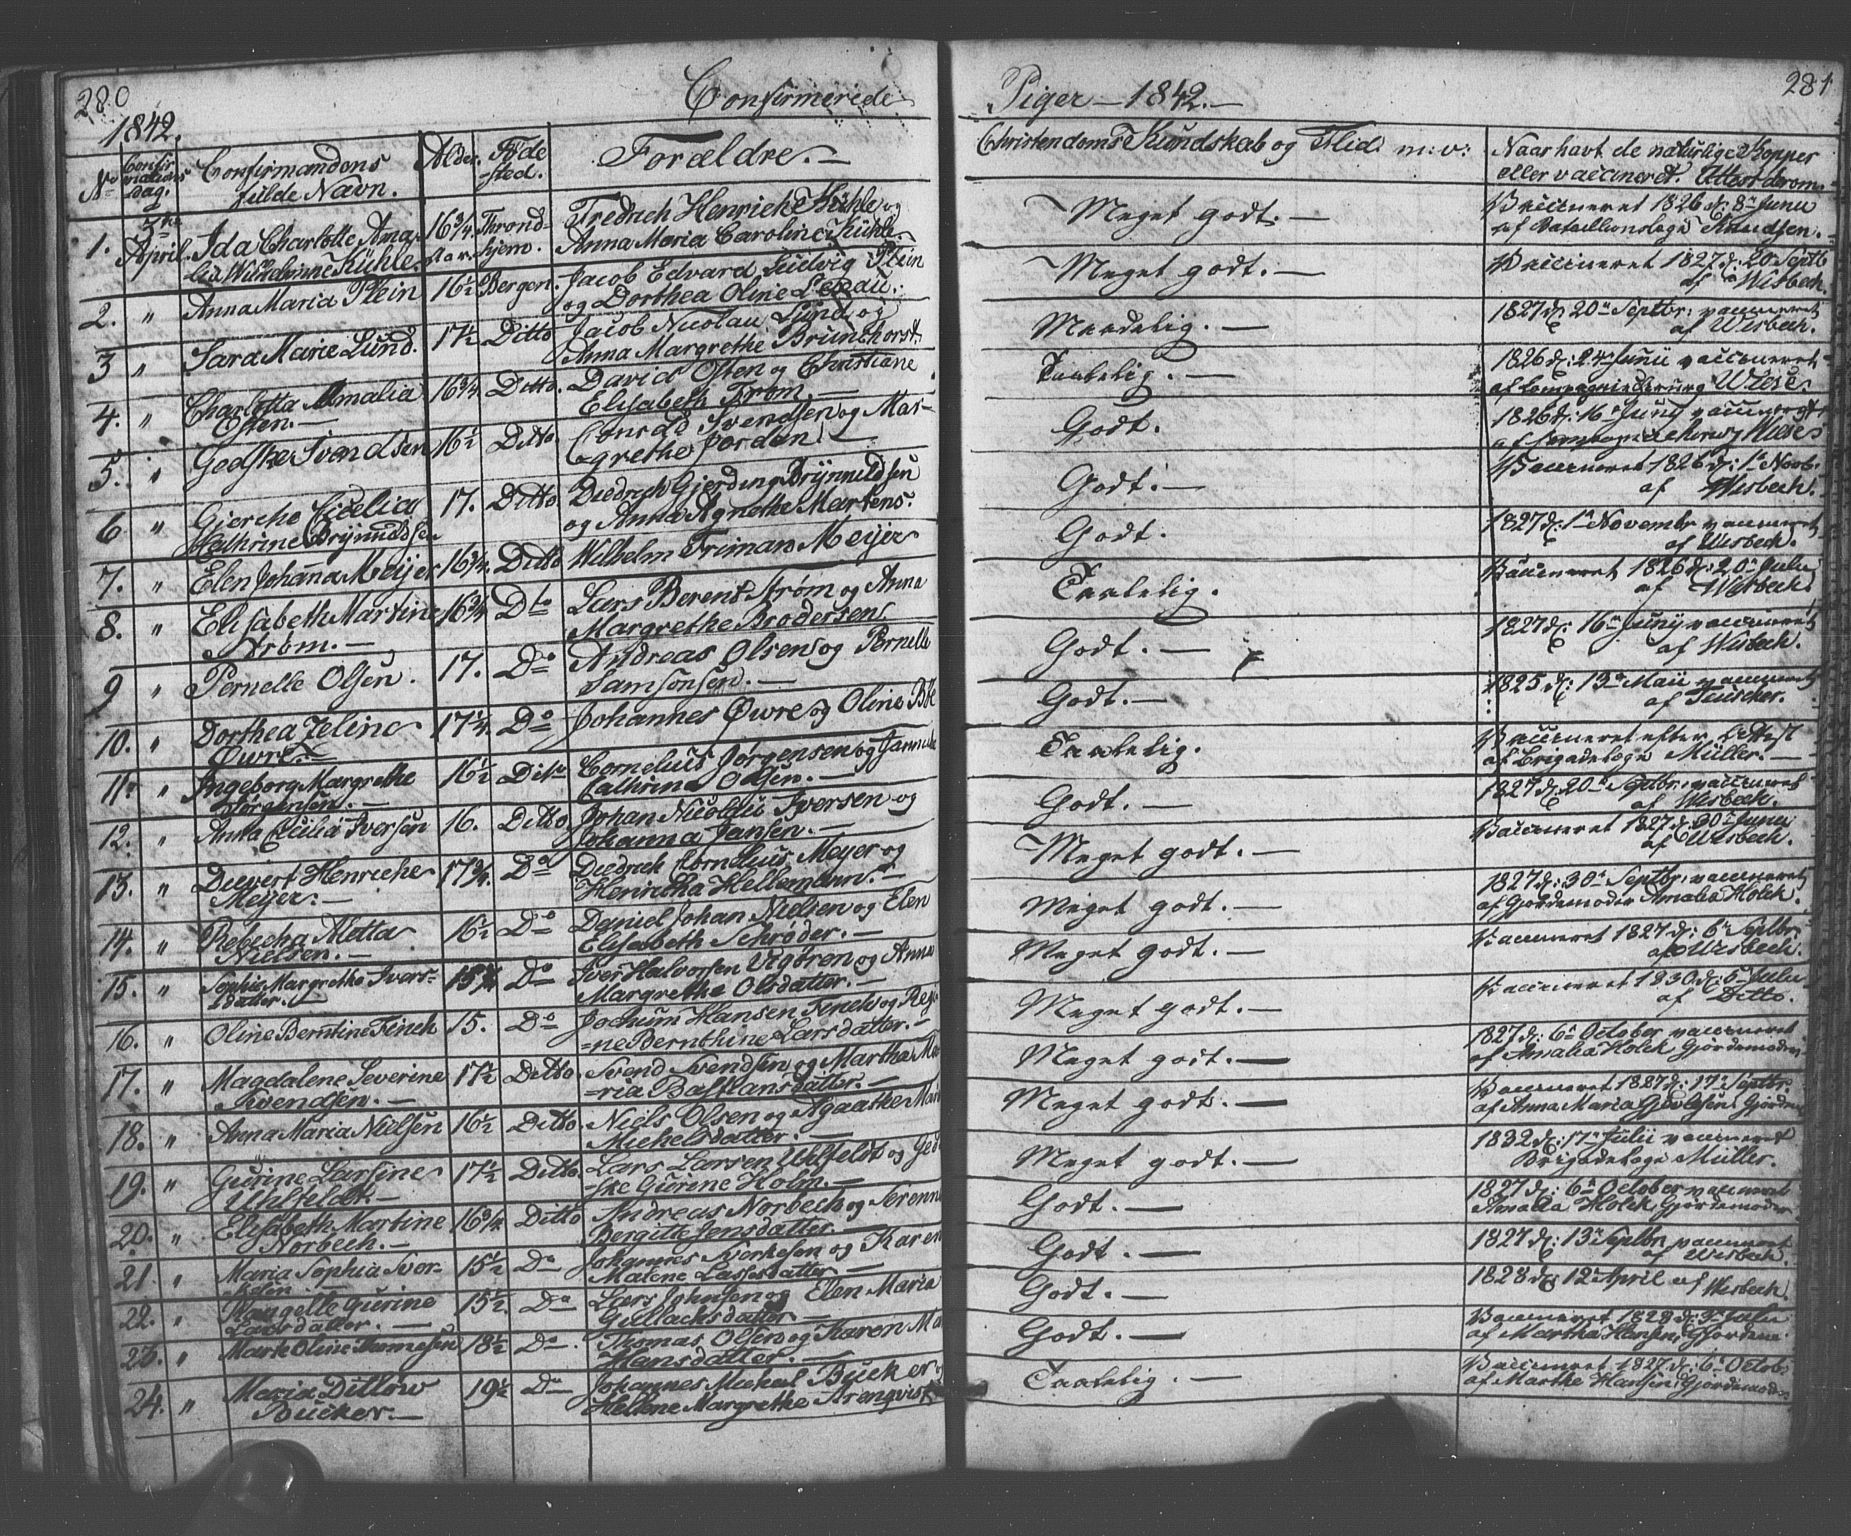 280
Confirmerede
1842.
No
Confirmations dag.
Confirmandens
fulde Navn.
Alder.
Føde
sted.
Forældre. —
1.
April.
Ida Charlotte Ama-
lia Wilhelmine Kühle.
16 3/4
Aar.
Thrond-
hjem.
Fredrich Henrich Kühle og
Anna Maria Caroline Kühle.
2. " Anna Maria Plein 16 1/2 Bergen. Jacob Edvard Ludvig Plein
og Dorthea Oline
3 " Sara Marie Lund. 17 1/2 Ditto Jacob Nicolai Lund og
Anna Margrethe Brunchorst.
4. " Charlotta Amalia 16 3/4. Ditto. David Osten og Christiane
Osten. — Elisabeth Frøm. —
5. " Svendsen 16 1/2 Ditto Conrad Svendsen og Mar-
grethe Jordan.
6 " Gierche Cicelia 17. Ditto Diedrich Gjerding Brynnildsen
Cathrine Brynnildsen og Anna Agnethe Martens.
7. " Elen Johanna Meijer 16 3/4. Ditto Wilhelm Friman Meijer
8. " Elisabeth Martine 16 3/4 Dto Lars Berent Strøm og Anna
Strøm. — Margrethe Brodersen.
9 " Pernelle Olsen. 17. Do Andreas Olsen og Pernelle
Samsonsen. —
10. " Dorthea Zeline 17 1/4. Do Johannes Øvre og Oline
Øvre.
11. " Ingeborg Margrethe 16 1/2 Ditto Cornelius Jørgensen og
Jørgensen. — Cathrina Olsen. —
12. " Anna Cecilia Iversen 16. Ditto Johan Nicolai Iversen og
Johanna Jansen. —
13. " Dievert Henriche 17 3/4. Do Diedrich Cornelius Meyer og
Meijer. — Henricha Hellemann. —
14. " Rebecha Metta 16 1/2 Do Daniel Johan Nielsen og Elen
Nielsen. — Elisabeth Schrøder. —
15. " Sophie Margrethe Ivers- Do Iver Halvorsen Vigøren og Anna
datter. Margrethe Olsdatter. —
16. " Oline Berntine Finch 15. Do Jochum Hansen Finch og Regi
=ne Bernthine Larsdatter. —
17. " Magdalene Severine 17 1/2 Ditto. Svend Svendsen og Martha Ma
Svendsen. — =ria Bastiansdatter. —
18. " Anna Maria Nielsen 16 1/2 Ditto. Niels Olsen og Agaathe Mari
Michelsdatter. —
19. " Gurine Larsine 17 1/2 Ditto. Lars Larsen Uhlfeldt og Ged
Uhlfeldt. — =ske Gurine Holm. —
20. " Elisabeth Martine 16 3/4 Ditto Andreas Norbech og Serenna
Norbech. — Bergitte Jensdatter.
21. " Maria Sophia 15 1/2 Do Johannes og Karen
Malene Lassesdatter —
22. " Gurine 15 1/2. Do Lars Johnsen og Elen Maria
Larsdatter. — Gullacksdatter —
23. " Oline 18 1/2 Do. Thomas Olsen og Karen Ma
Hansdatter. —
24. " Maria Ditlow 19 1/2 Do Johannes Michael Bücker og
Bücker. — Helene Margrethe Arenqvist
Piger — 1842. —
281
Christendoms Kundskab og Flid m: v:
Naar havt de naturlige Kopper
eller vaccineret. Attest derom
Meget godt. — Vaccineret 1826 d: 8de Junii
af Bataillionslæge Knudsen.
Meget godt. — Vaccineret 1827 d: 20 Septb
af Wisbech.
Maadelig. — 1827 d: 20de Septbr: vaccineret
af Wisbech.
Taalelig. — 1826 d: 24 Junii vaccineret
af Compagniechirurg Wiese
Godt. 1826 d: 16de Junij vaccineret
af Compagniechirurg Wiese
Godt. — Vaccineret 1826 d: 1de Novb.
af Wisbech.
Godt. 1827 d: 1de Novembr vaccineret
af Wisbech.
Taalelig. Vaccineret 1826 d: 20de Julii
af Wisbech.
Godt. — 1827 d: 16de Junij vaccineret
af Wisbech.
Godt. — 1825 d: 13de Maii vaccineret
af Tuscher.
Taalelig. Vaccineret efter Attest
af Brigadelæge Müller. —
Godt. — 1827 d: 20de Septbr: vaccineret
af Wisbech.
Meget godt. — Vaccineret 1827 d: 30te Junii
af Wisbech.
Meget godt. — 1827 d: 30te Septbr: vaccineret
af Gjordemoder Amalia Holck.
Meget godt. — Vaccineret 1827 d: 6te Septbr:
af Wisbech.
Meget godt. — Vaccineret 1830 d: 6te Julii
af Ditto.
Meget godt. — 1827 d: 6te October vaccineret
af Amalia Holck Gjordemoder
Meget godt. — Vaccineret 1827 d: 17de Septbr:
af Anna Maria Gjordem
Meget godt. — 1832 d: 17de Julii vaccineret
Brigadelæge Müller.
Godt. — 1827 d: 6te October vaccineret
Amalia Holck Gjordemoder
Godt. — 1827 d: 13de Septbr. vaccineret
af Wisbech.
Godt. — 1828 d: 12te April af Wisbech.
Godt. — Vaccineret 1828 d: 3de Julii
af Martha Hansen, Gjordem.
Taalelig. — Vaccineret 1827 d: 6te Octob:
af Marthe Hansen Gjordemoder